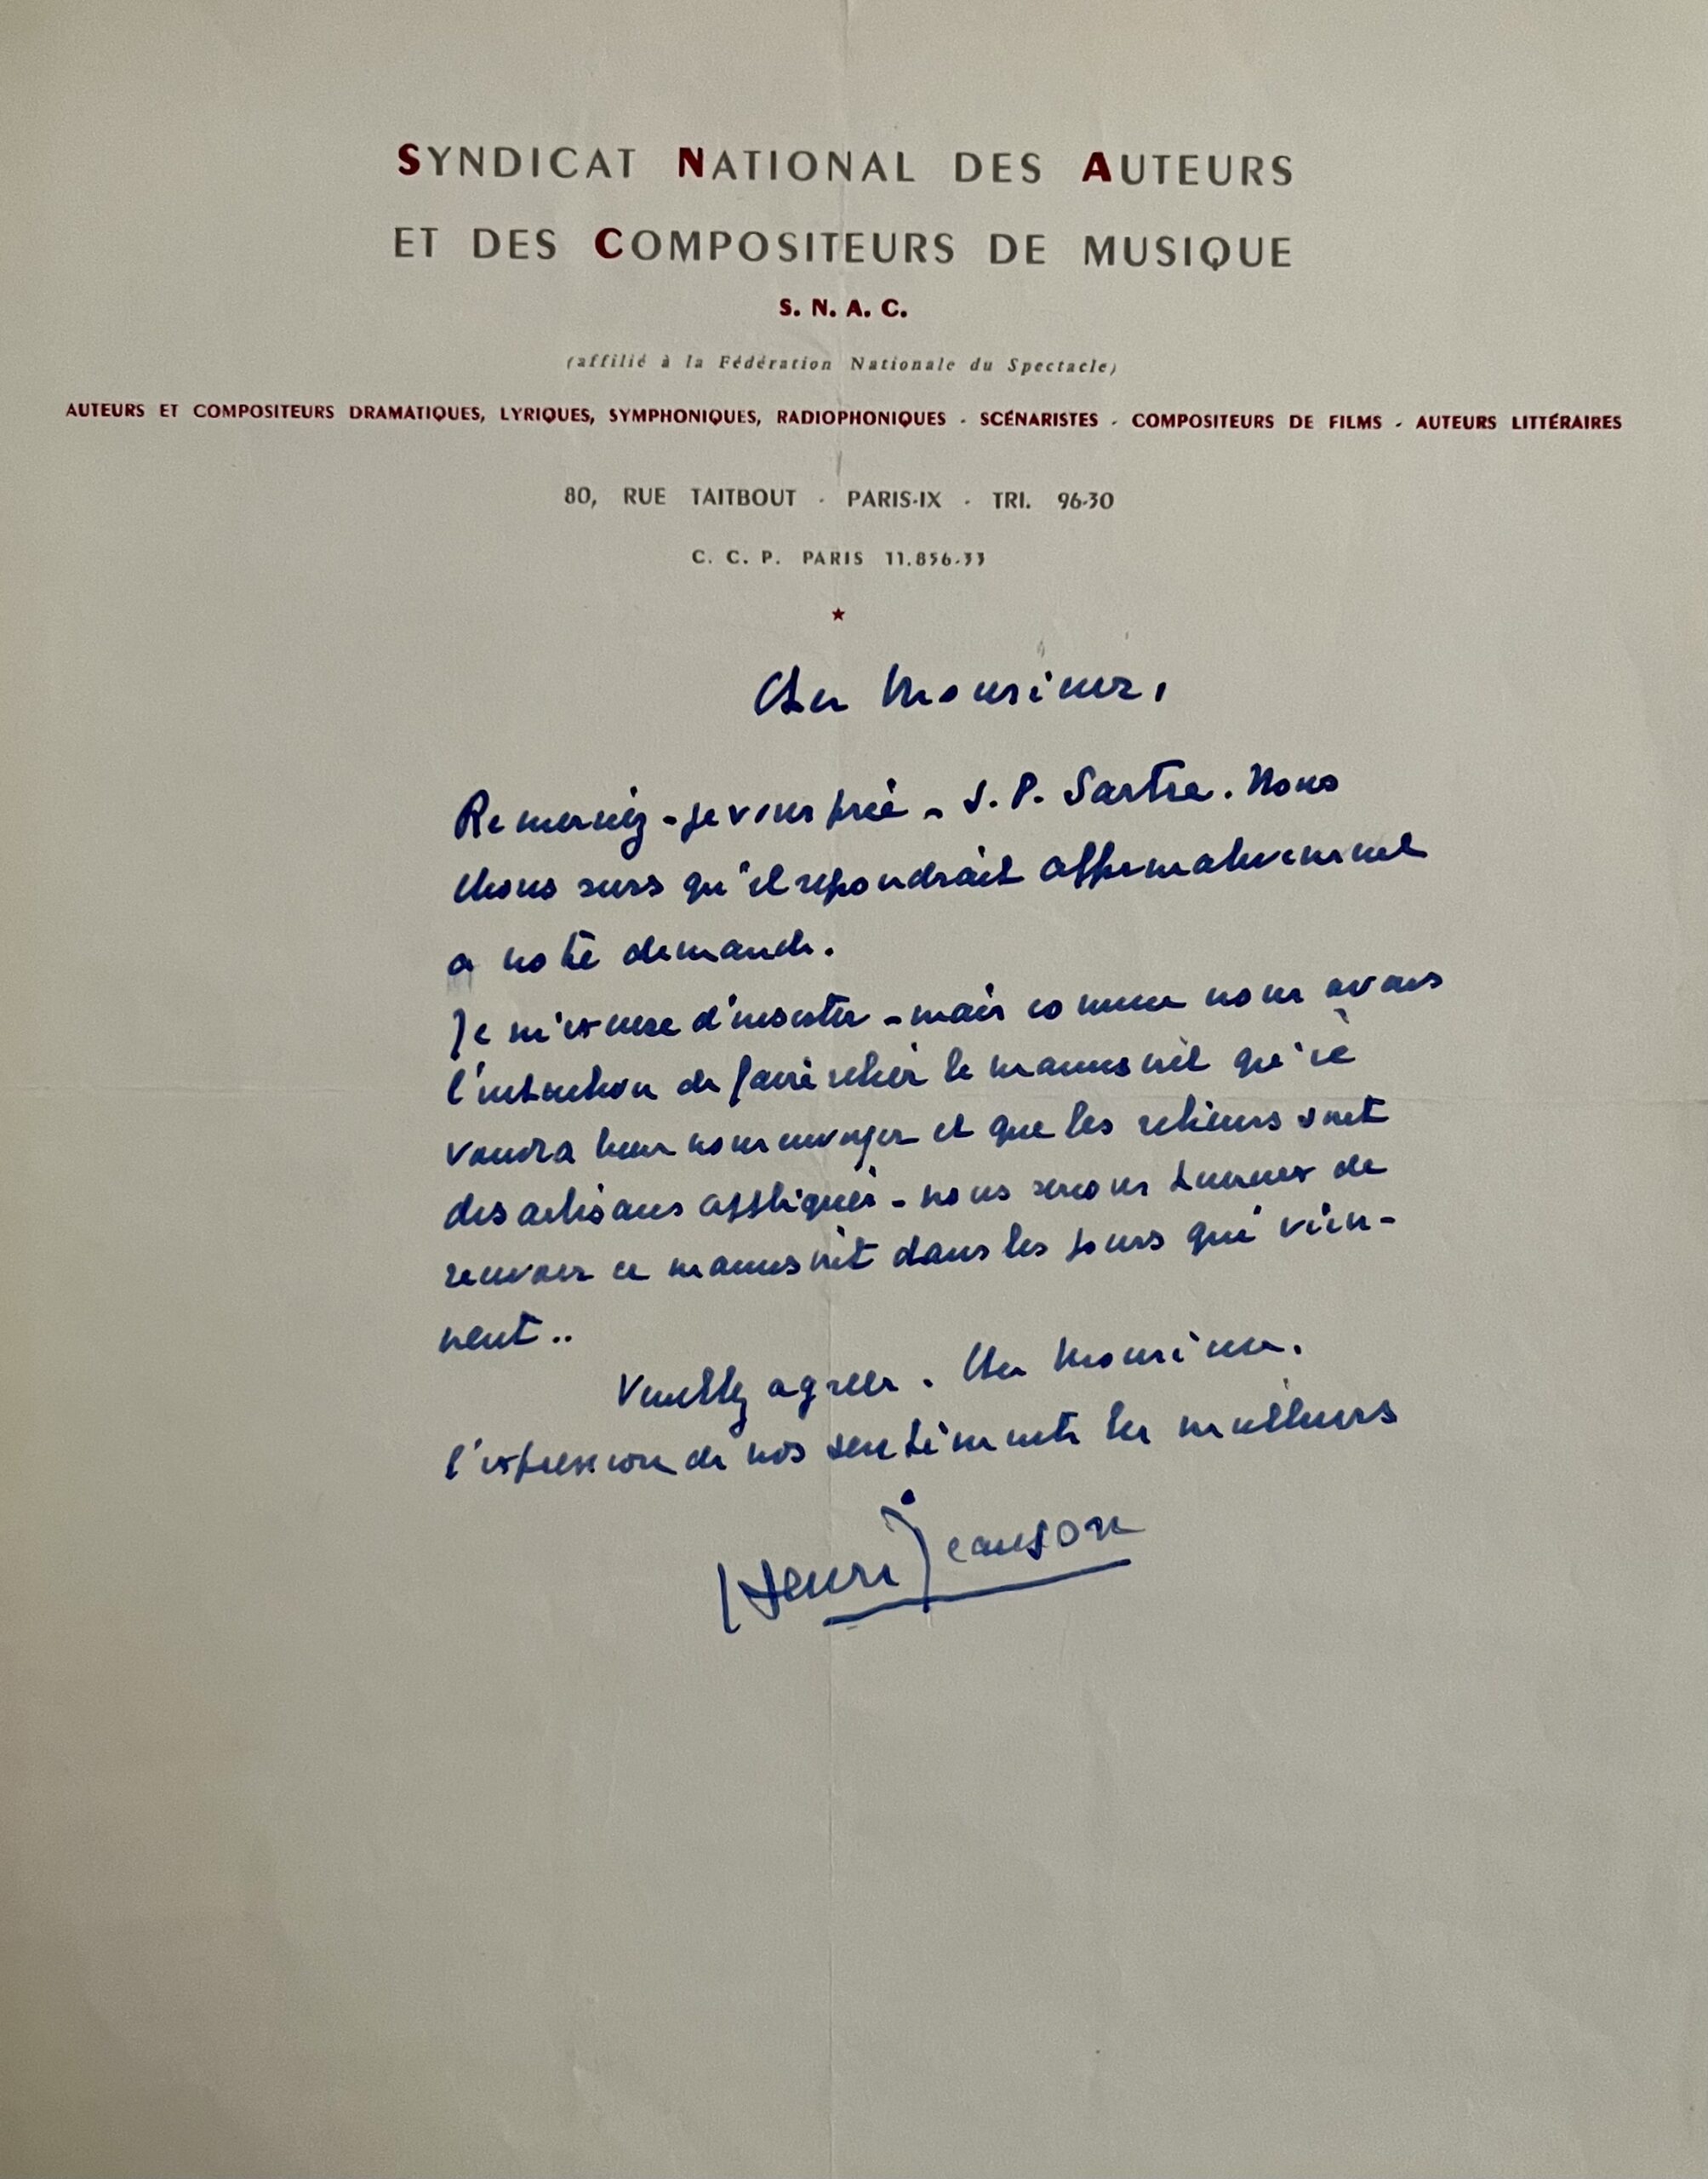 SYNDICAT NATIONAL DES AUTEURS
ET DES COMPOSITEURS DE MUSIQUE
S. N. A. C.
(affilié à la Fédération Nationale du Spectacle)
AUTEURS ET COMPOSITEURS DRAMATIQUES, LYRIQUES, SYMPHONIQUES, RADIOPHONIQUES - SCÉNARISTES - COMPOSITEURS DE FILMS - AUTEURS LITTÉRAIRES
80, RUE TAITBOUT - PARIS-IX - TRI. 96-30
C. C. P. PARIS 11.856-33
Cher Monsieur,
Remerciez - je vous prie - J. P. Sartre. Nous
étions surs qu'il repondrait affirmativement
a notre demande.
Je m'excuse d'insister - mais comme nous avons
l'intention de faire relier le manuscrit qu'il
voudra bien nous envoyer et que les relieurs sont
des artisans appliqués - nous serions heureux de
recevoir ce manuscrit dans les jours qui vien-
nent..
Veuillez agreer. Cher Monsieur.
l'expression de nos sentiments les meilleurs
Henri Jeanson